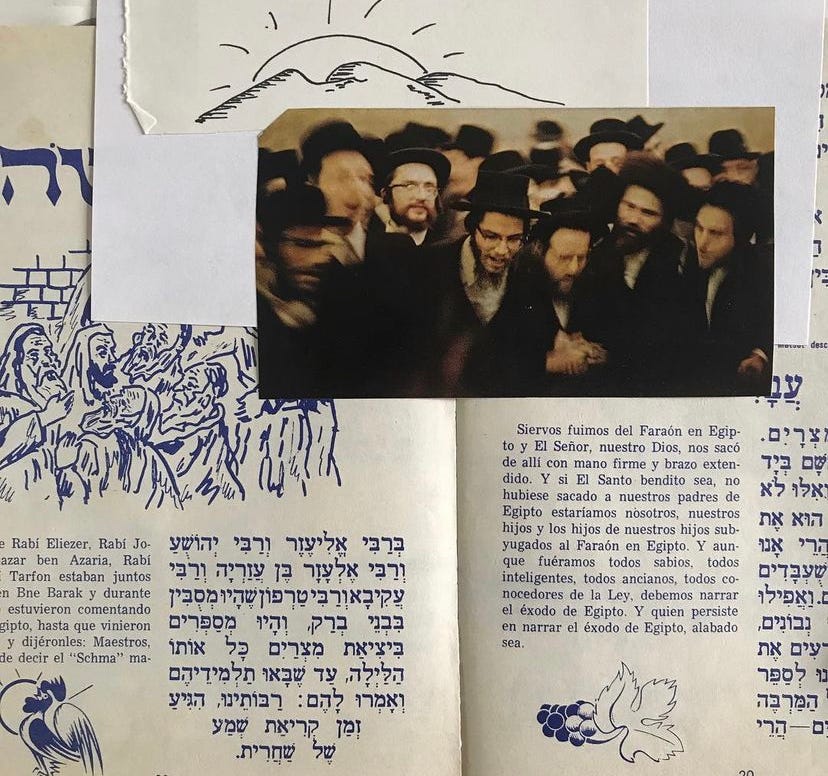 e Rabí Eliezer, Rabí Jo-
azar ben Azaria, Rabí
i Tarfon estaban juntos
en Bne Barak y durante
e estuvieron comentando
gipto, hasta que vinieron
y dijéronles: Maestros,
de decir el “Schma” ma-
בְּרַבִּי אֱלִיעֶזֶר וְרַבִּי יְהוֹשֻׁעַ
וְרַבִּי אֶלְעָזָר בֶּן עֲזַרְיָה וְרַבִּי
עֲקִיבָא וְרַבִּי טַרְפוֹן שֶׁהָיוּ מְסֻבִּין
בִּבְנֵי בְרַק, וְהָיוּ מְסַפְּרִים
בִּיצִיאַת מִצְרַיִם כָּל אוֹתוֹ
הַלַּיְלָה, עַד שֶׁבָּאוּ תַלְמִידֵיהֶם
וְאָמְרוּ לָהֶם: רַבּוֹתֵינוּ, הִגִּיעַ
זְמַן קְרִיאַת שְׁמַע
שֶׁל שַׁחֲרִית.
matsot desc
Siervos fuimos del Faraón en Egip-
to y El Señor, nuestro Dios, nos sacó
de allí con mano firme y brazo exten-
dido. Y si El Santo bendito sea, no
hubiese sacado a nuestros padres de
Egipto estaríamos nosotros, nuestros
hijos y los hijos de nuestros hijos sub-
yugados al Faraón en Egipto. Y aun-
que fuéramos todos sabios, todos
inteligentes, todos ancianos, todos co-
nocedores de la Ley, debemos narrar
el éxodo de Egipto. Y quien persiste
en narrar el éxodo de Egipto, alabado
sea.
עֲבָ
מִצְרָיִם.
שָּׁם בְּיָד
אִלּוּ לֹא
הוּא אֶת
הֲרֵי אָנוּ
שֻׁעְבָּדִים
ם. וַאֲפִילוּ
נְבוֹנִים,
דְעִים אֶת
נוּ לְסַפֵּר
הַמַּרְבֶּה
ם—הֲרֵי
20